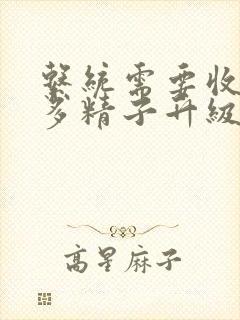 繫統需要收
多精子升級
高星麻子